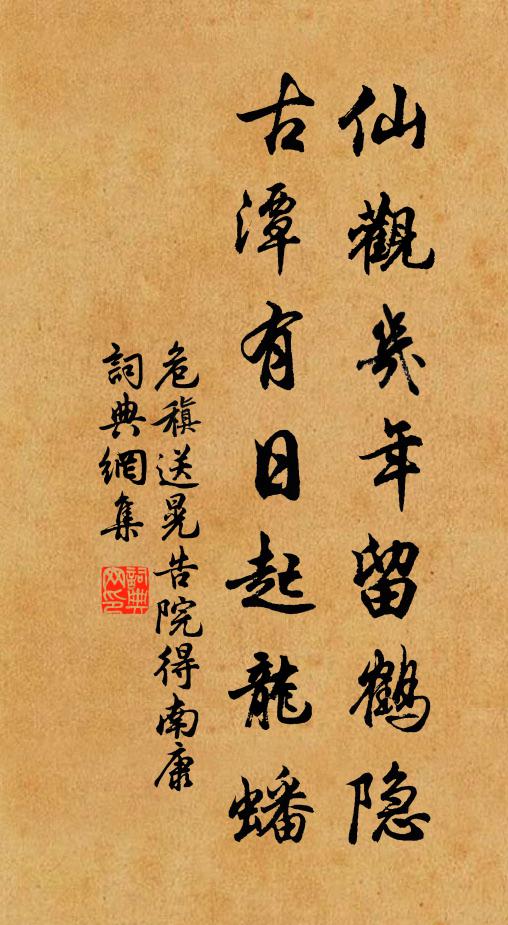 仙觀幾年留鶴隐
古潭有日起龍蟠
危稹送晃告院得南康
詞典網集
詞典
网印